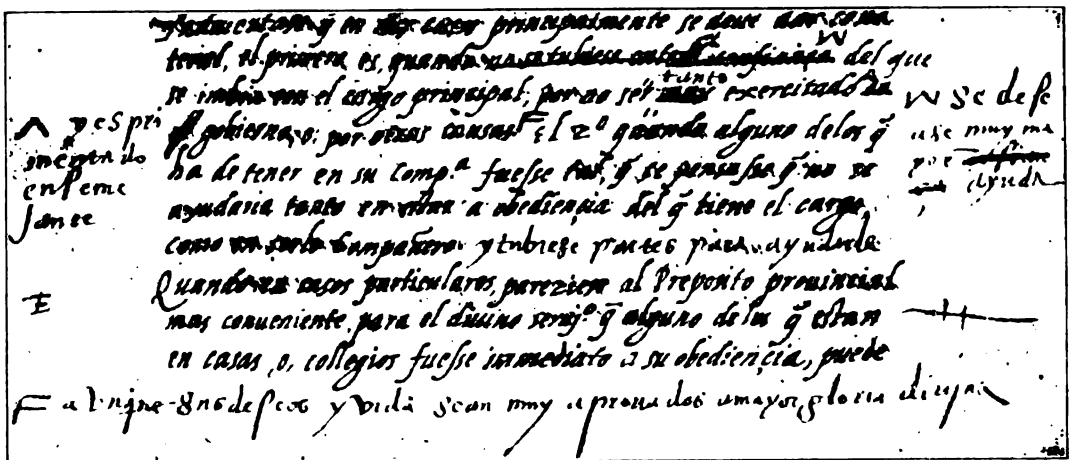 en casos principalmente se deue dar cola
teral, el primero es, quando del que
se imbia con el cargo principal, por no ser tanto exercitado en
gobierno, o, por otras causas El 2º quando alguno delos q̃
ha de tener en su Comp.ª fuesse tal, q̃ se pensasse q̃ no se
ayudaria tanto en estar a obediençia del q̃ tiene el cargo,
como compañero y tubiese partes para ayudarle
Quando en casos particulares, pareziese al Preposito prouincial
mas conueniente, para el diuino seruiº q̃ alguno de los q̃ estan
en casas, o, collegios fuesse immediato a su obediençia, puede
y espri
mentado
en seme
jante
se dese
ase muy ma
yor
ayuda
F aunque sus deseos y vida sean muy aprouados a mayor gloria diuina